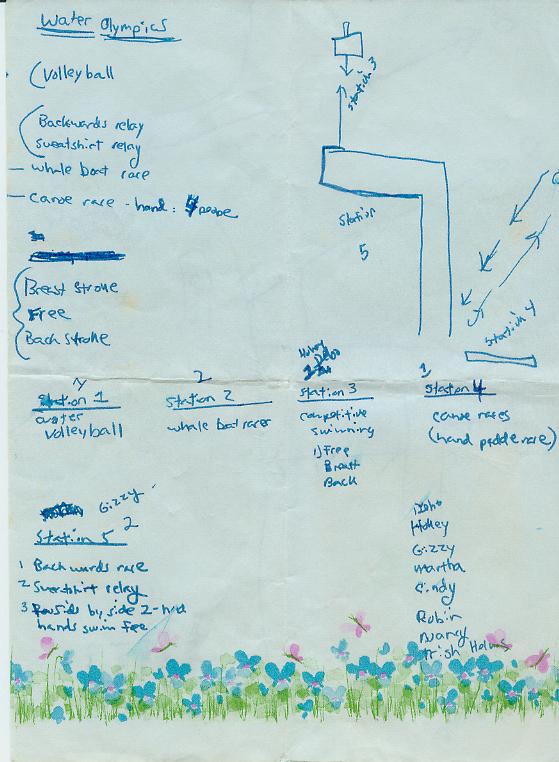 Water Olympics
Volleyball
Backwards relay
Sweatshirt relay
- Whale boat race
- Canoe race - hand: people
Breast stroke
Free
Back stroke
Station 3
Station
5
Station 4
Station 1
water
Volleyball
2
Station 2
whale boat races
Station 3
competitive
swimming
1) Free
Breast
Back
1
Station 4
canoe races
(hand paddle race)
Gizzy
2
Station 5
1 Backwards race
2 Sweatshirt relay
3 side by side 2
hands swim free
Hokey
Gizzy
Martha
Cindy
Robin
Nancy
Trish Holmes